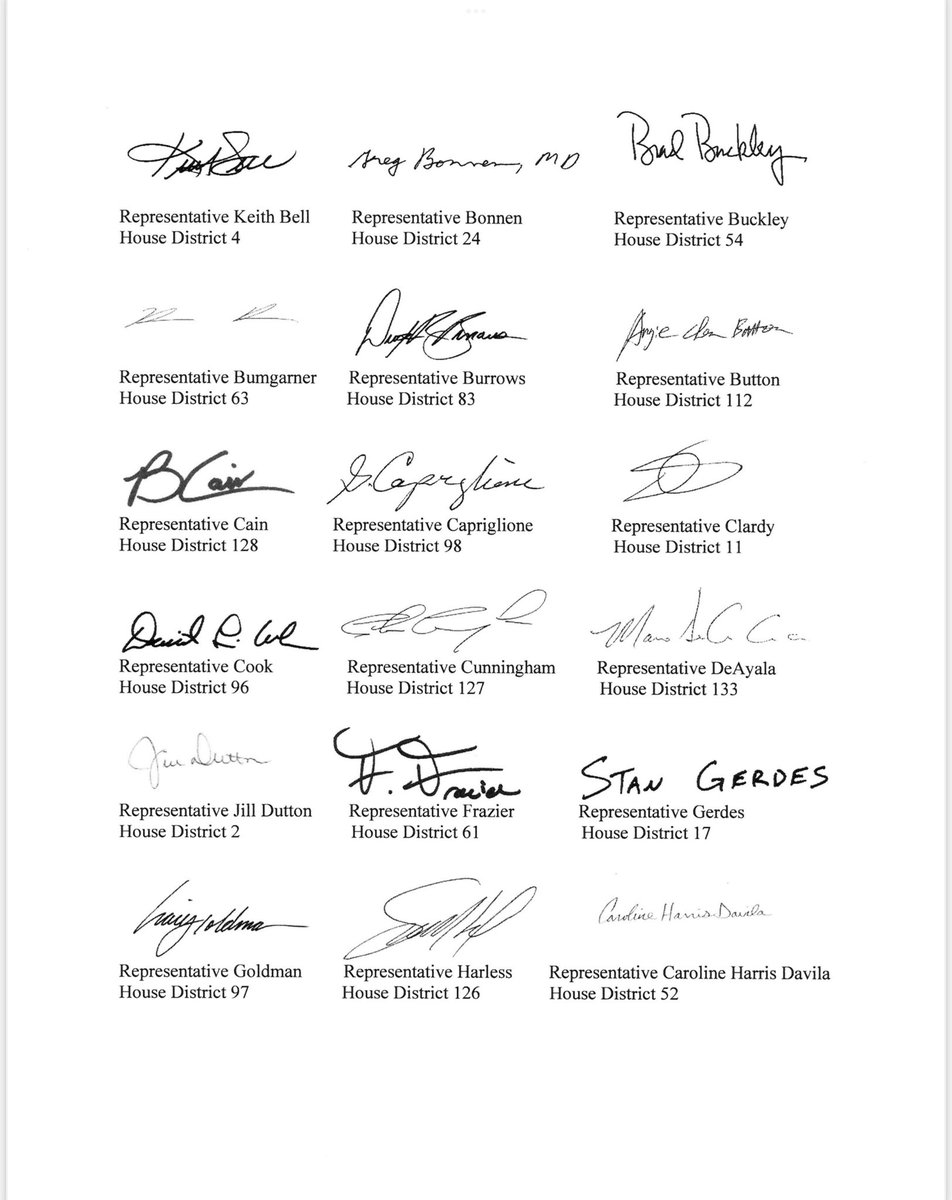 Greg Bonnen, MD
Brad Buckley
Representative Keith Bell
House District 4
Representative Bonnen
House District 24
Representative Buckley
House District 54
Angie Chen Button
Representative Bumgarner
House District 63
Representative Burrows
House District 83
Representative Button
House District 112
B Cain
G. Capriglione
Representative Cain
House District 128
Representative Capriglione
House District 98
Representative Clardy
House District 11
Representative Cook
House District 96
Representative Cunningham
House District 127
Representative DeAyala
House District 133
Jill Dutton
STAN GERDES
Representative Jill Dutton
House District 2
Representative Frazier
House District 61
Representative Gerdes
House District 17
Craig Goldman
Caroline Harris Davila
Representative Goldman
House District 97
Representative Harless
House District 126
Representative Caroline Harris Davila
House District 52